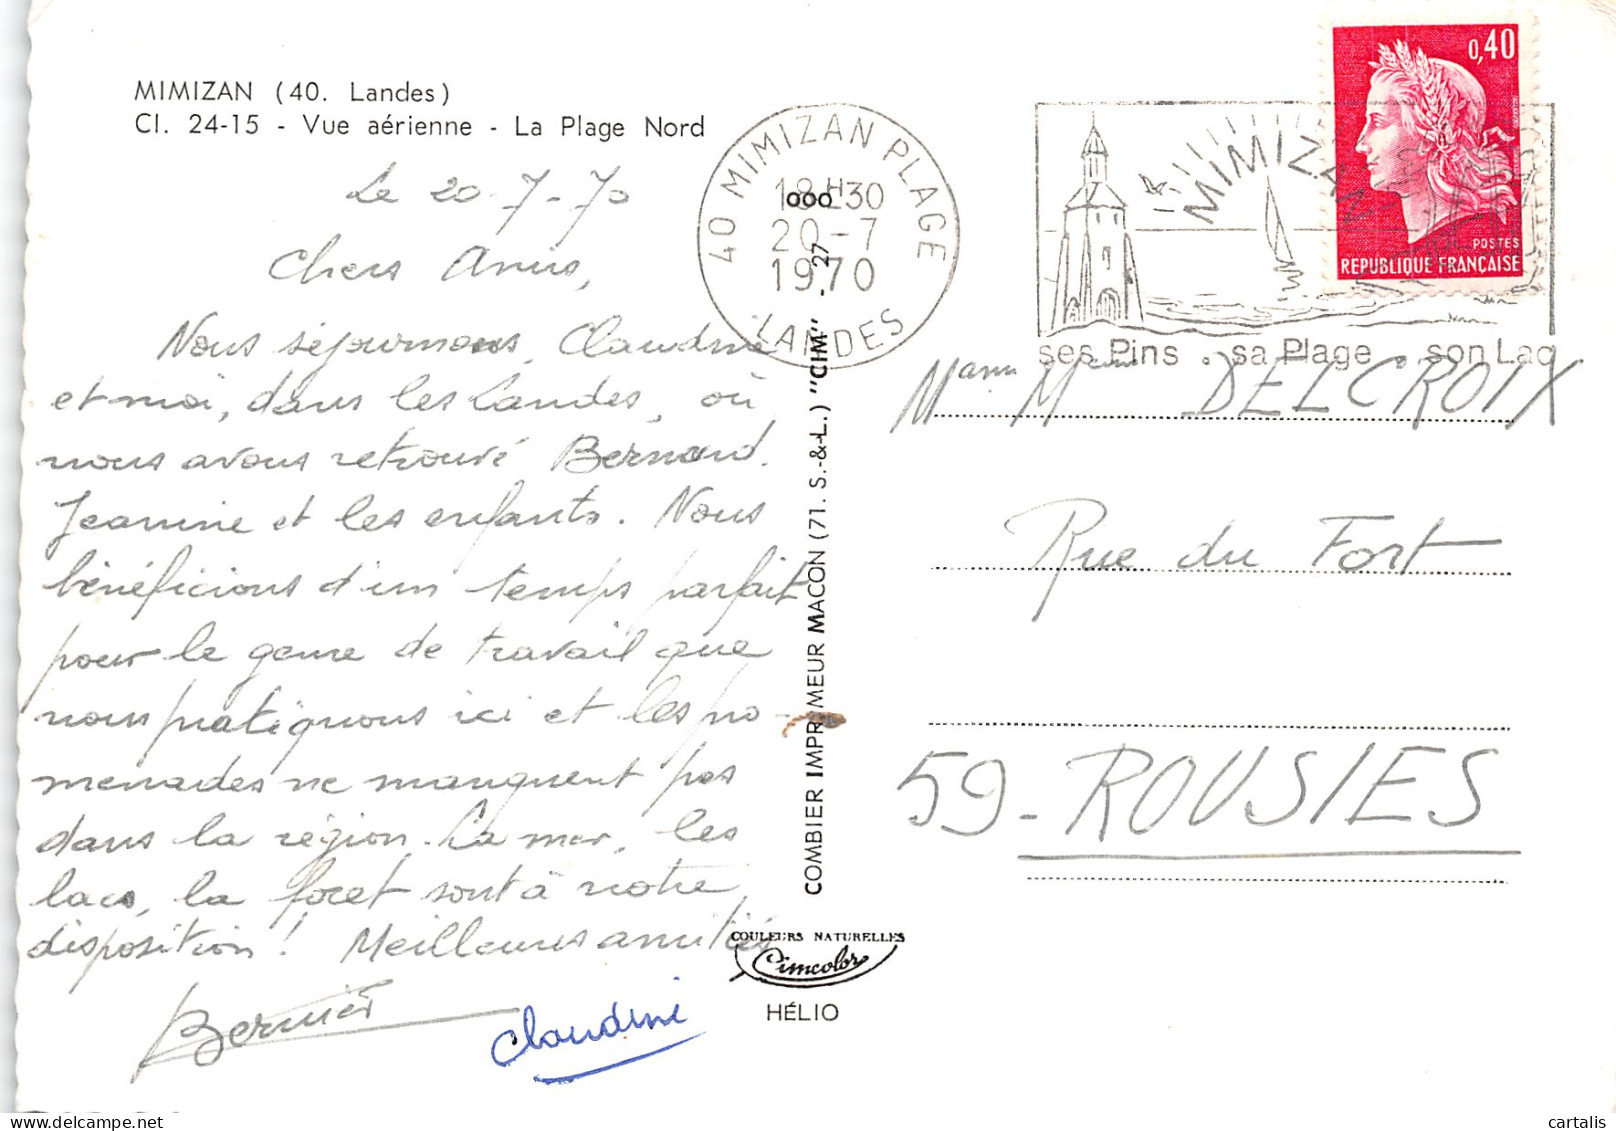 MIMIZAN (40. Landes)
Cl. 24-15 - Vue aérienne - La Plage Nord
Le 20-7-70
Chers Amis,
Nous séjournons, Claudine
et moi, dans les Landes, où
nous avons retrouvé Bernard,
Jeanine et les enfants. Nous
bénéficions d'un temps parfait
pour le genre de travail que
nous pratiquons ici et les pro-
menades ne manquent pas
dans la région. La mer, les
lacs, la foret sont à notre
disposition ! Meilleures amitiés
Bernier
Claudine
COMBIER IMPRIMEUR MACON (71. S.-&-L.) "CIM" - 27
COULEURS NATURELLES
Cimcolor
HÉLIO
40 MIMIZAN PLAGE
18H30
000
20-7
1970
LANDES
MIMIZAN
ses Pins . sa Plage . son Lac
0,40
POSTES
REPUBLIQUE FRANÇAISE
M. DELCROIX
Rue du Fort
59-ROUSIES
cartalis
www.delcampe.net